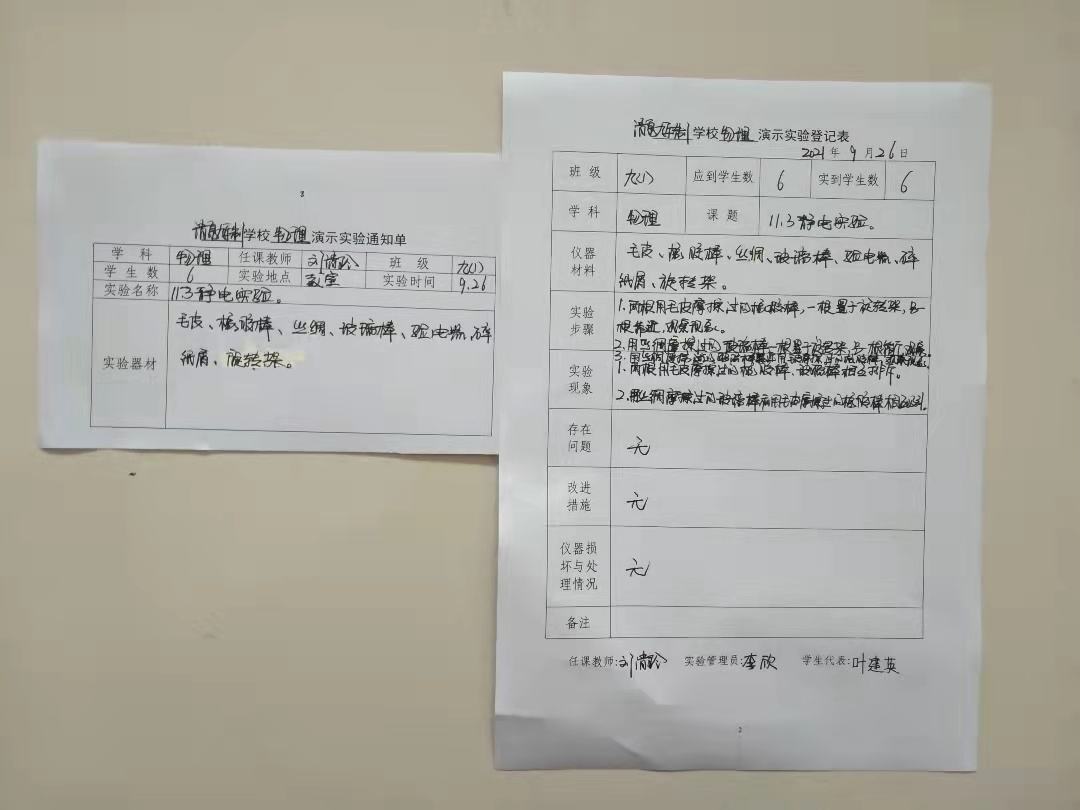 8
学校物理演示实验通知单
学科 物理 任课教师 刘 班级 九(1)
学生数 6 实验地点 教室 实验时间 9.26
实验名称 11.3静电实验。
实验器材 毛皮、橡胶棒、丝绸、玻璃棒、验电器、碎
纸屑、旋转架。
学校物理演示实验登记表
2021年9月26日
班级 九(1) 应到学生数 6 实到学生数 6
学科 物理 课题 11.3静电实验。
仪器材料 毛皮、橡胶棒、丝绸、玻璃棒、验电器、碎
纸屑、旋转架。
实验步骤 1.两根用毛皮摩擦过的橡胶棒,一根置于旋转架,另一
根靠近,观察现象。
2.用丝绸摩擦过的玻璃棒一根置于旋转架,另一根
3.用丝绸摩擦过的玻璃棒
实验现象 1.两根用毛皮摩擦过的橡胶棒、玻璃棒相互排斥。
2.用丝绸摩擦过的玻璃棒和用毛皮摩擦过的橡胶棒相互吸引。
存在问题 无
改进措施 无
仪器损坏与处理情况 无
备注
任课教师:刘 实验管理员:李欣 学生代表:叶建英
2